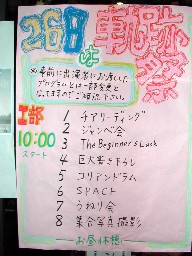 26日は
軌跡祭
※事前に出演者にお渡しした
プログラムとは一部変更と
なってますのでご確認下さい。
I部
10:00
スタート
1 チアリーディング
2 ジャンベ会
3 The Beginner's Luck
4 巨大書き下ろし
5 コリアンドラム
6 SPACE
7 うねり会
8 集合写真撮影
—お昼休憩—